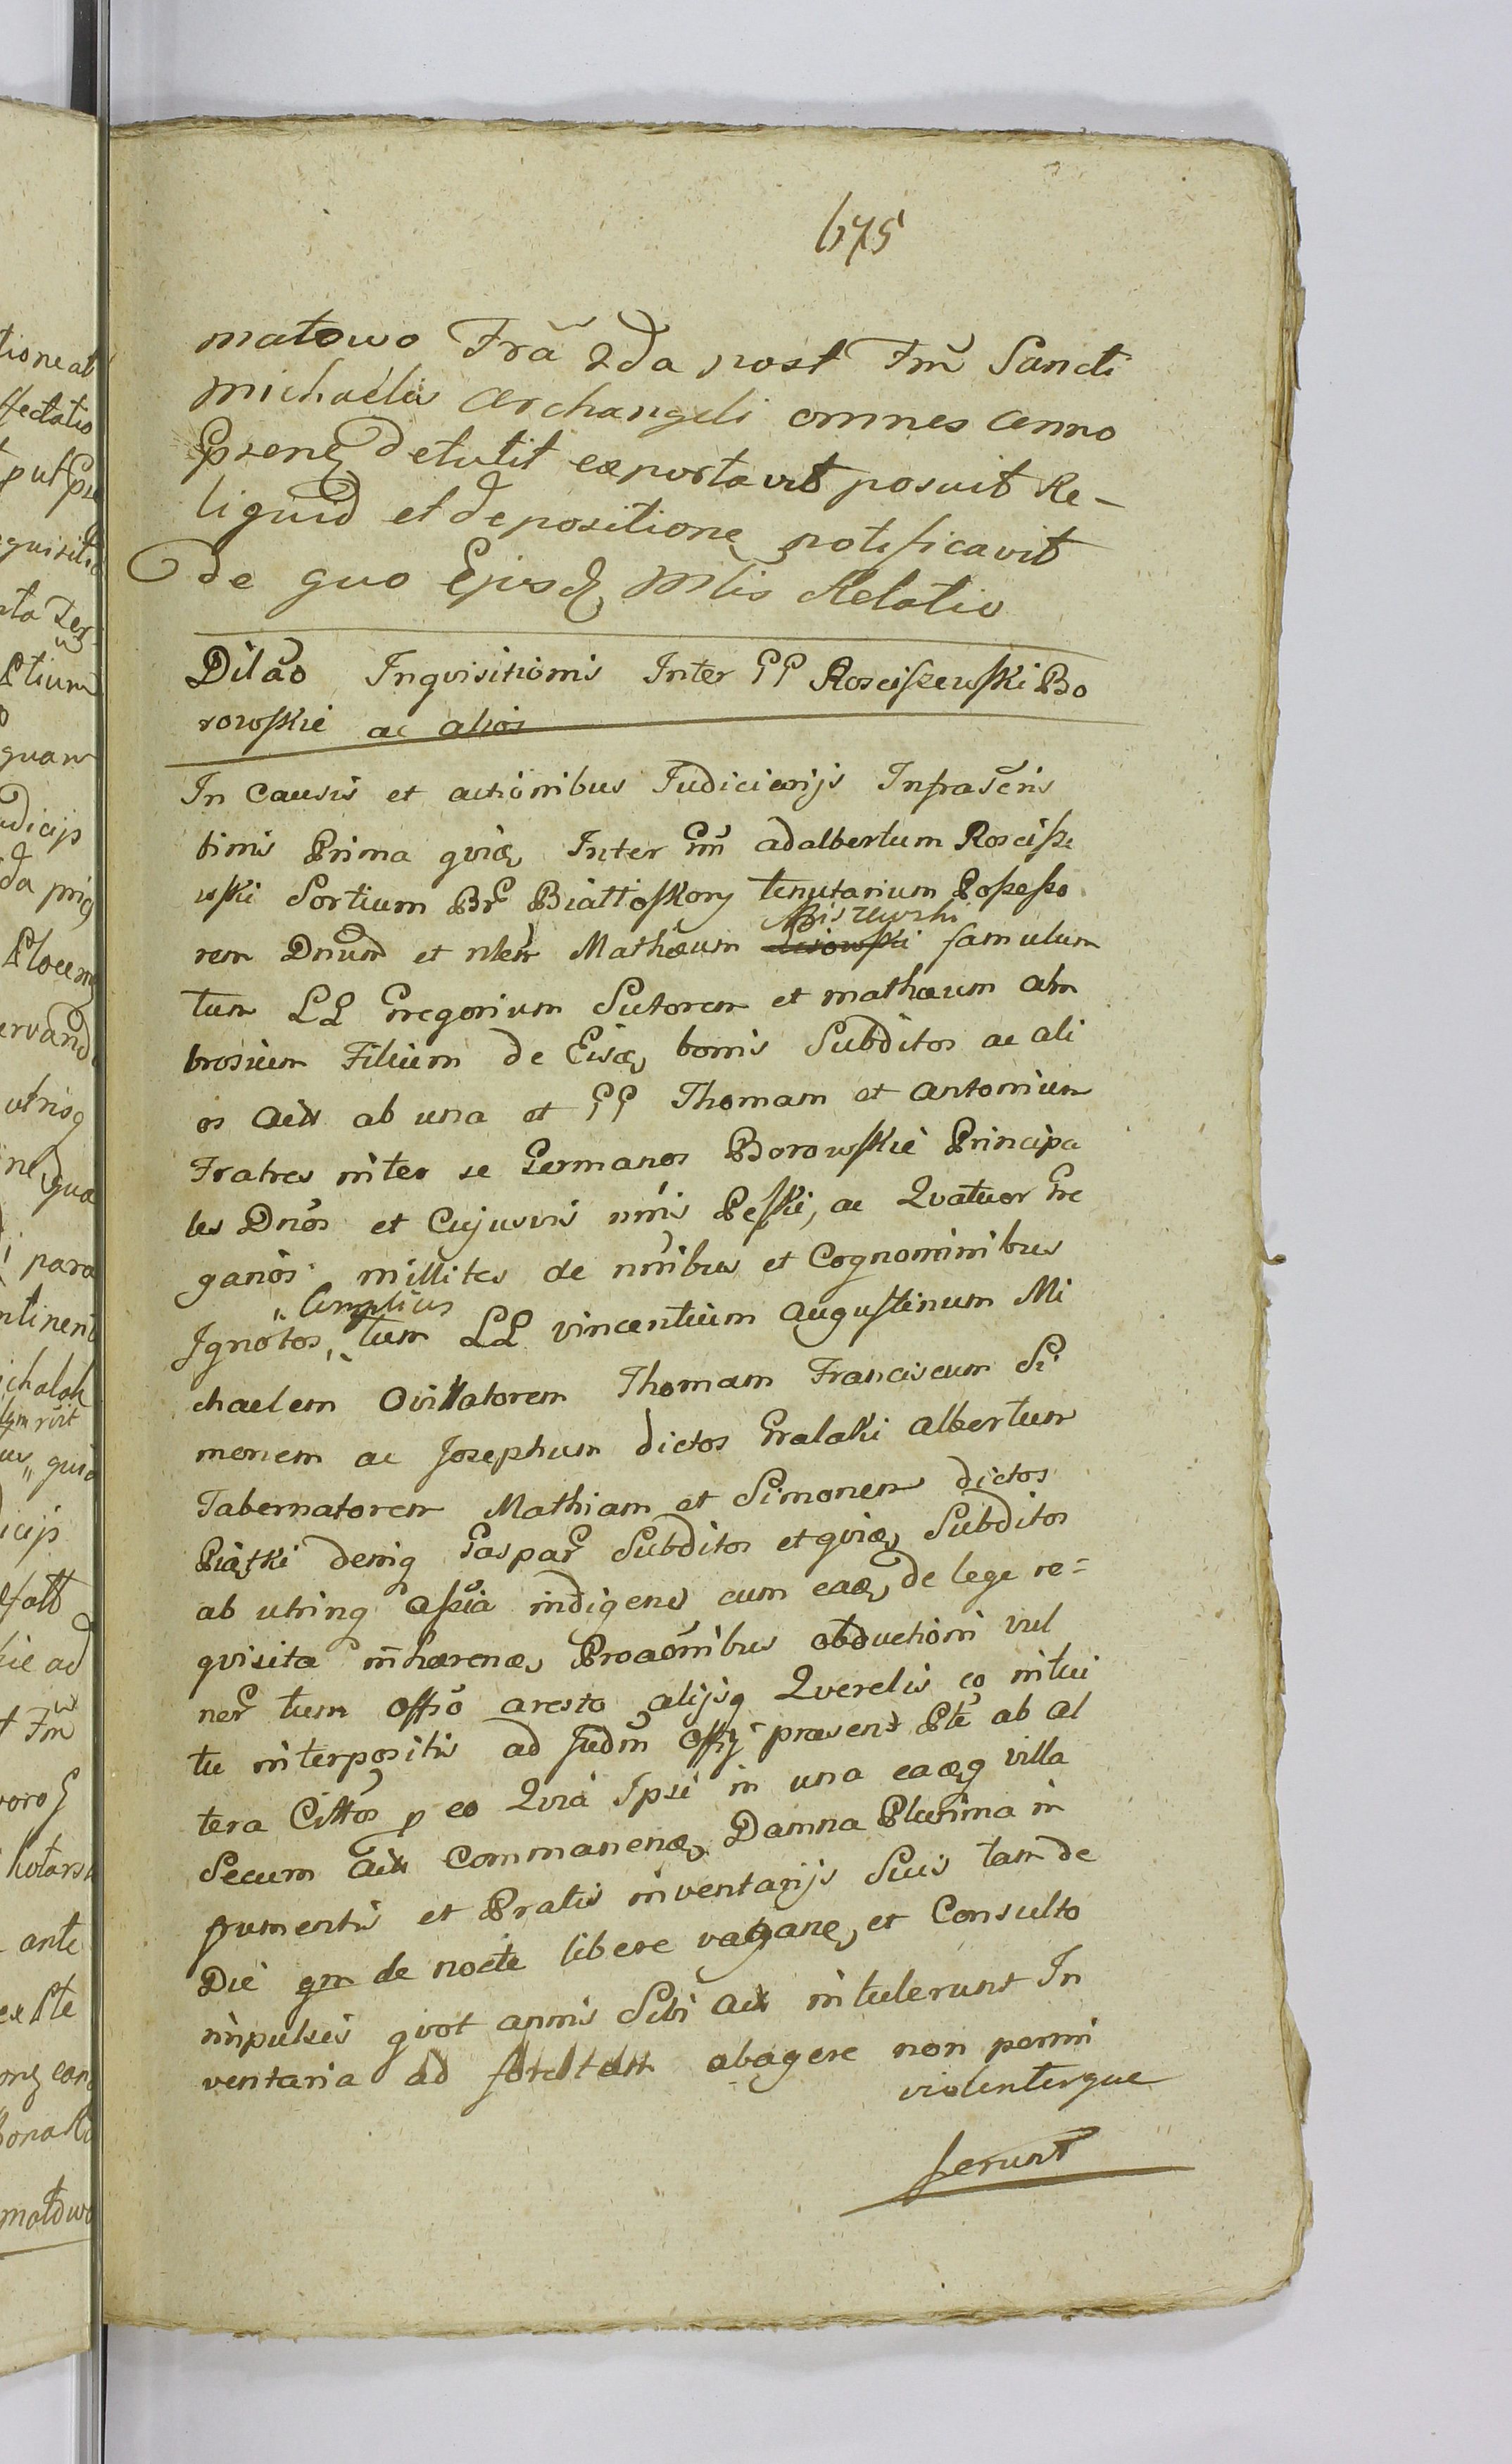 675
matowo Fra 2da post Fm Sancti
Michaelis Archangeli omnes Anno
Prene Detulit exportavit posuit Re-
liquid et depositione notificavit
de quo Ejusd Mlis Relatio
Dilao Inqvisitionis Inter GG Roscißewski Bo
rowskie ac alios
In Causis et actionibus Judiciarijs Infrascris
timis Prima qviæ Inter Gm adalbertum Roscisze
wski Sortium Br Białłoskory tenutarium Poszeszo
rem Dnum et nlem Mathæum famulum
tum LL Gregorium Sutorem et mathæum am
brosium Filium de Eisæ bonis Subditos ac ali
os ab una et GG Thomam et Antonium
Fratres inter se Germanos Borowskie Principa
les Dnos et Cujusvis nnis Peski, ac Qvatuor Gre
ganos millites de nnibus et Cognominibus
Amplius
Ignotos, tum LL vincentium Augustinum Mi
chaelem Ovillatorem Thomam Franciscum Si
monem ac Josephum dictos Gralaki Albertum
Tabernatorem Mathiam et Simonem dictos
Piątki deniq Gaspar Subditos et qviæ Subditos
ab utrinq indigene cum eaæ de lege re=
qvisita inhærenæ Proaonibus obductioni vul
ner tum Offo aresto alijsq Qverelis eo intui
tu interpositis ad Judm Offij præsens Pte ab al
tera Cittos p eo Qvia Ipsi in una eaæq villa
Secum Commanenæ Damna Plurima in
frumentis et Pratis inventarijs Suis tam de
Die qm de nocte libere vagane, et Consulto
impulsis qvot annis Sibi intulerunt In
ventaria ad abagere non permi
violenterque
serunt